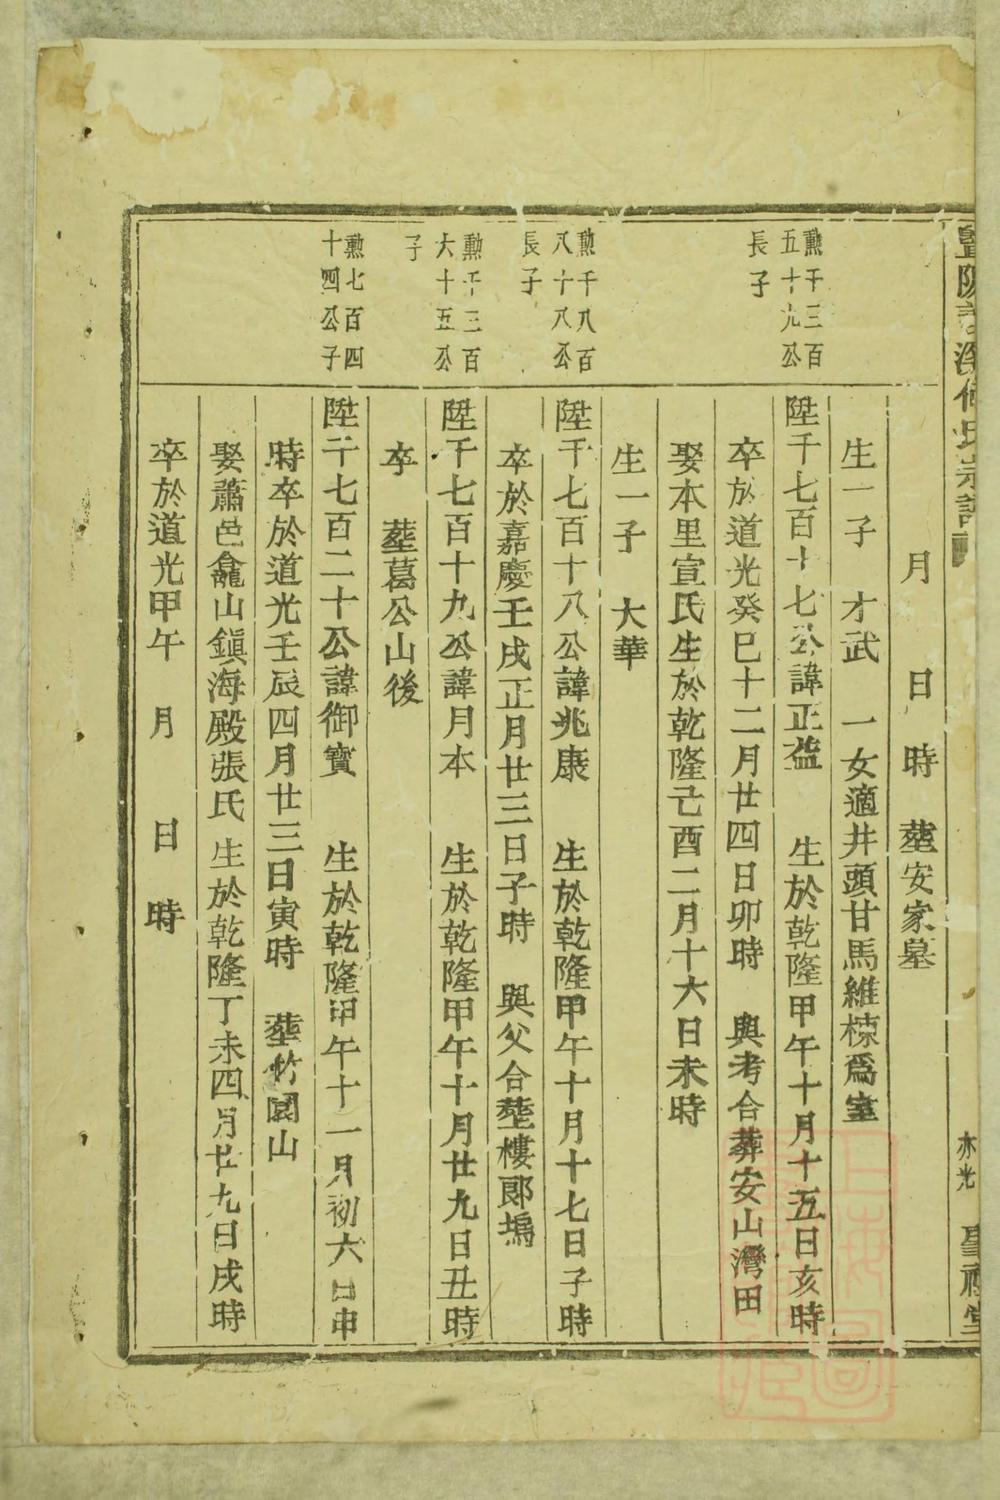 月　日　時　塟安家墓
生一子　才武　一女適井頭甘馬維棟爲室
勲千三百
五十九公
長子
陞千七百十七公諱正益　生於乾隆甲午十月十五日亥時
卒於道光癸巳十二月廿四日卯時　與考合葬安山灣田
娶本里宣氏生於乾隆己酉二月十六日未時
生一子　大華
勲千八百
八十八公
長子
陞千七百十八公諱兆康　生於乾隆甲午十月十七日子時
卒於嘉慶壬戌正月廿三日子時　與父合塟樓郎塢
勲千三百
六十五公
子
陞千七百十九公諱月本　生於乾隆甲午十月廿九日丑時
卒　塟葛公山後
勲七百四
十四公子
陞千七百二十公諱御寳　生於乾隆甲午十一月初六日申
時卒於道光壬辰四月廿三日寅時　塟竹園山
娶蕭邑龕山鎭海殿張氏　生於乾隆丁未四月廿九日戌時
卒於道光甲午　月　日　時